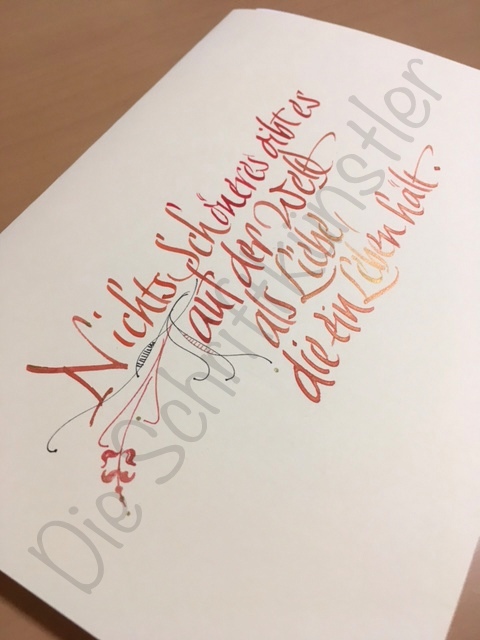 Nichts Schöneres gibt es
auf der Welt
als Liebe,
die ein Leben hält.
Die Schriftkünstler